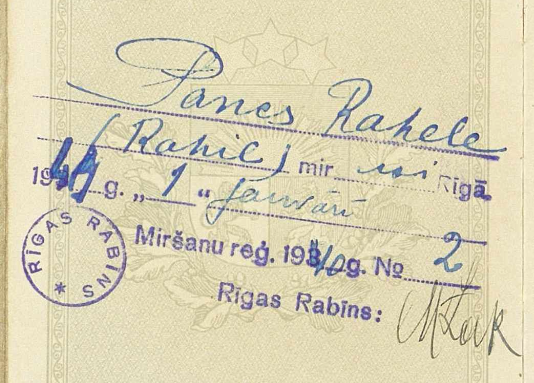 Pancs Rahele
(Rahil) mirusi Rīgā
1940 g. „1“ janvārī
Miršanu reģ. 1940 g. No 2
Rīgas Rabīns:
RĪGAS RABĪNS *